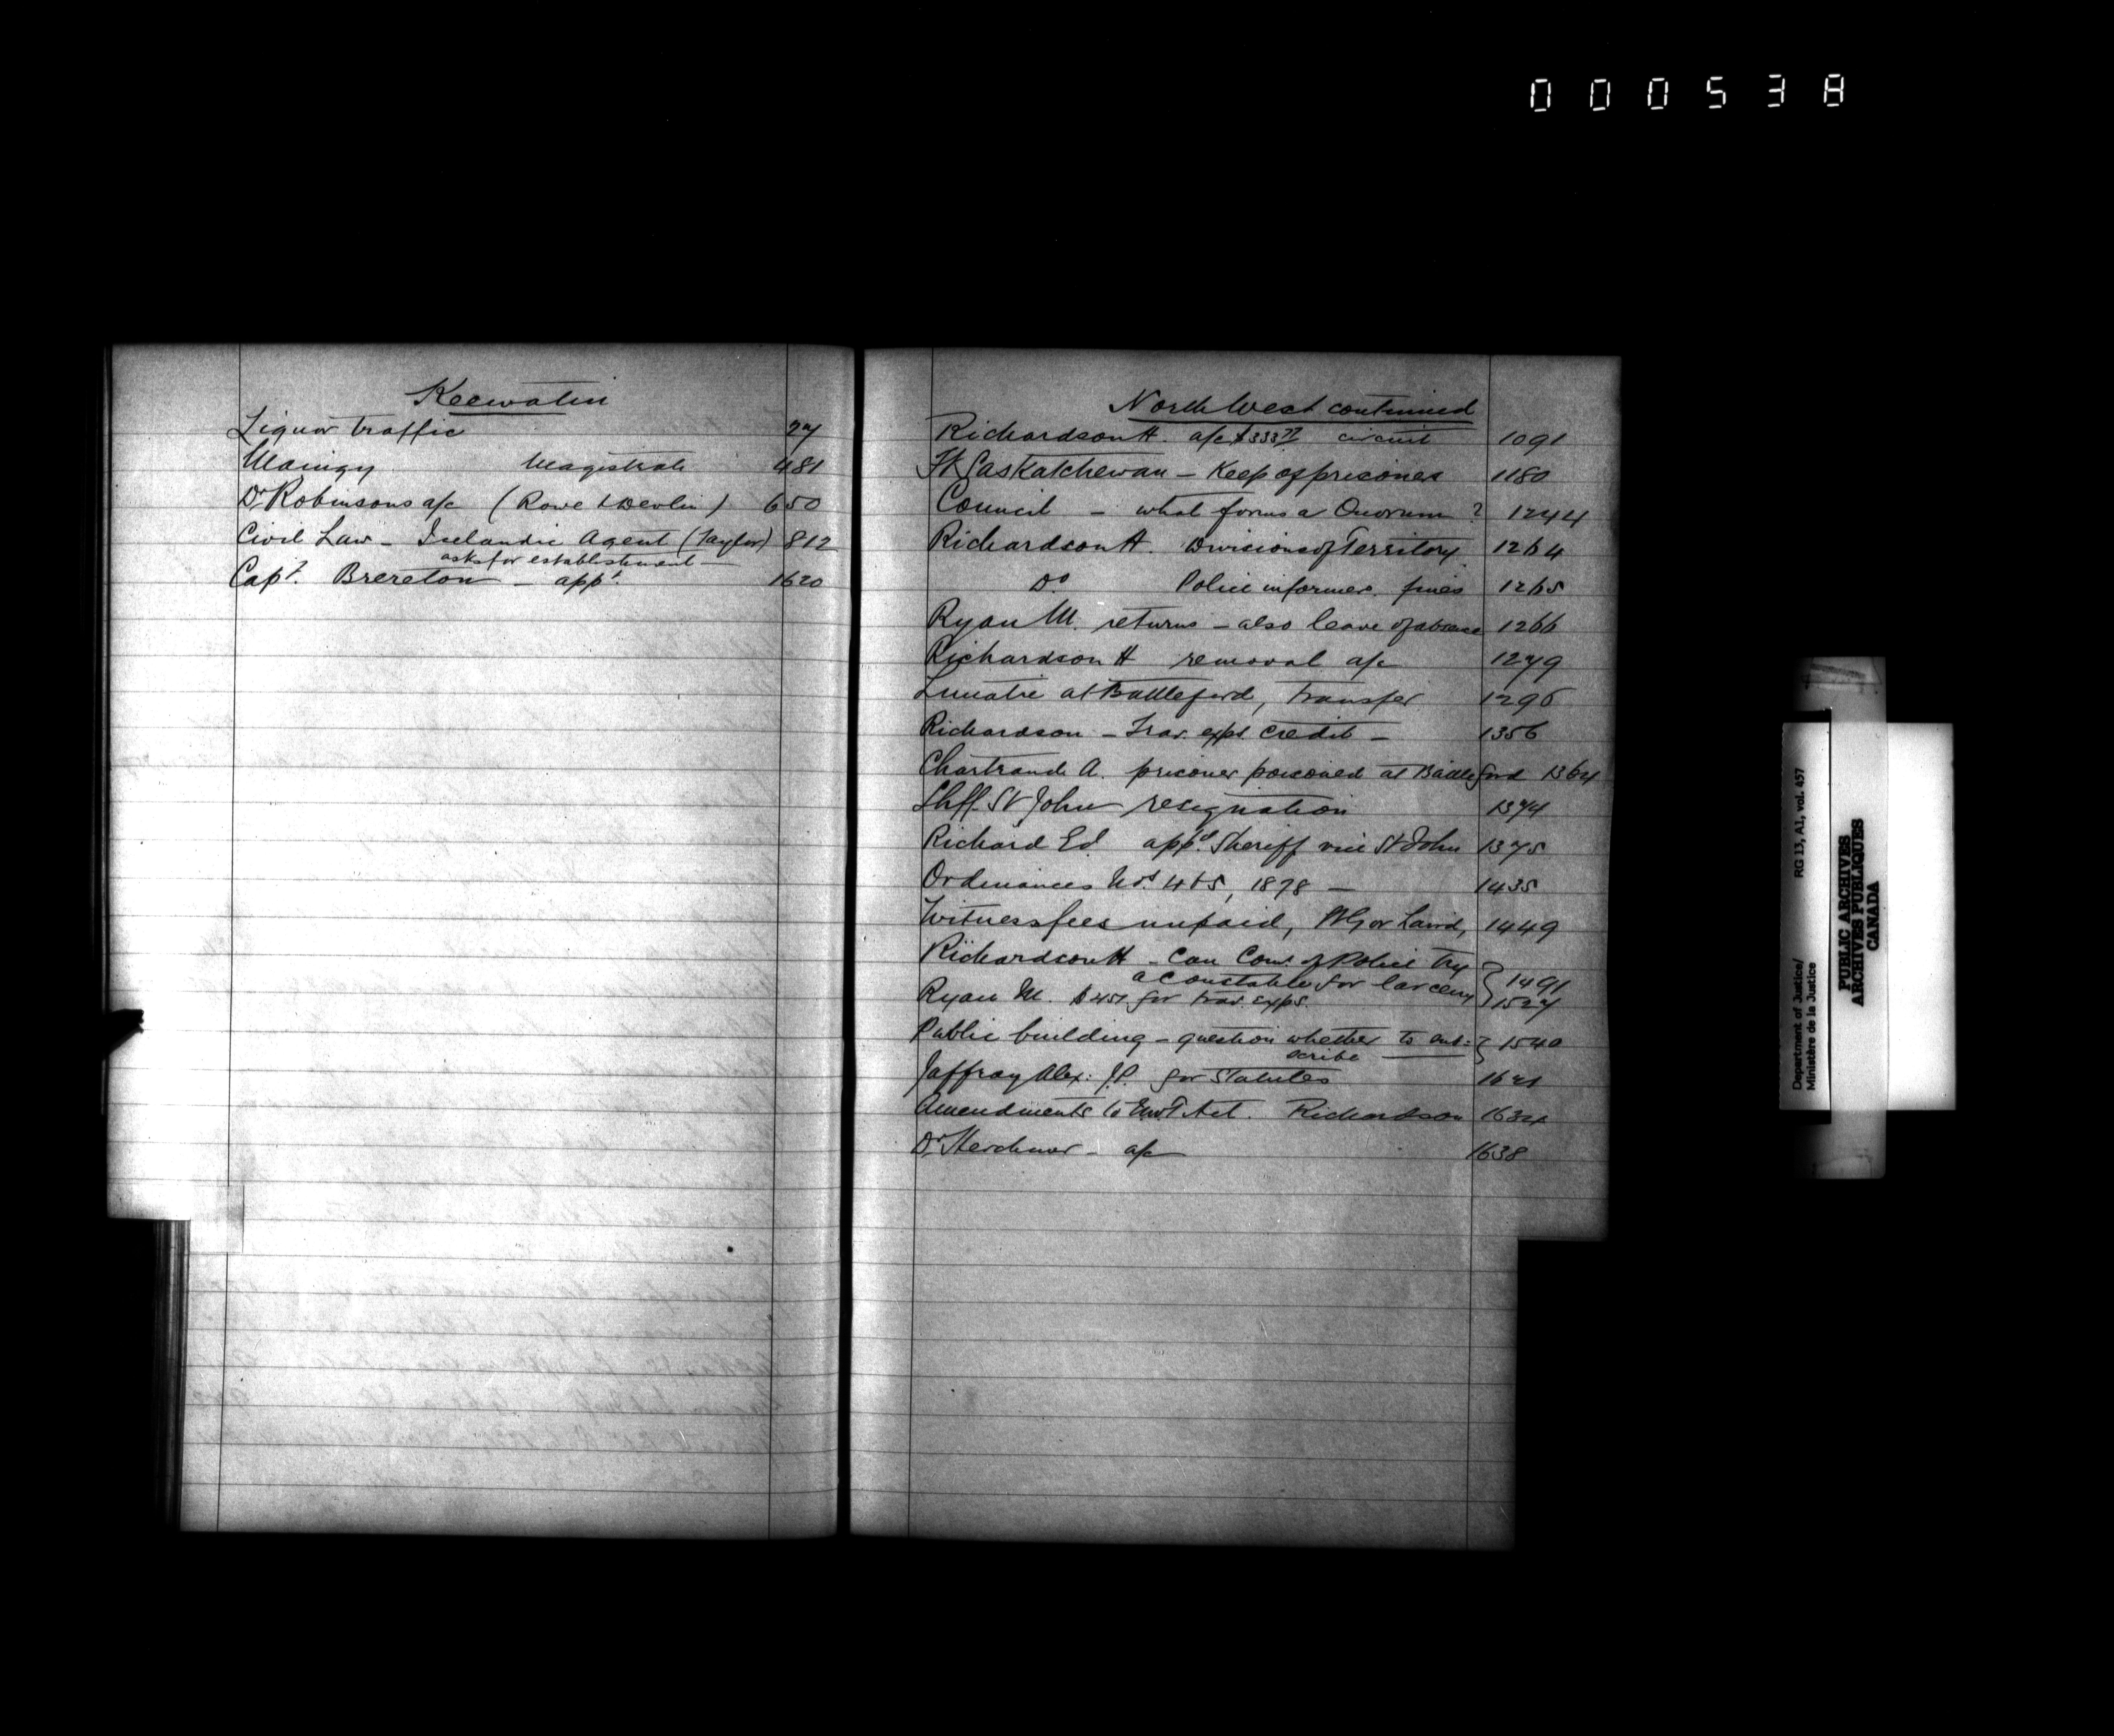 000538
Keewatin
Liquor traffic 27
Maingy Magistrate 481
Dr Robinsons a/c (Rowe & Devlin) 650
Civil Law - Icelandic Agent (Taylor) 812
asks for establishment -
Capt. Brereton - appt. 1620
North West continued
Richardson H. a/c $333 77 circuit 1091
Ft Saskatchewan - Keep of prisoner 1180
Council - what forms a Quorum ? 1244
Richardson H. Divisions of Territory. 1264
Do Police informers. fines 1265
Ryan M. returns - also leave of absence 1266
Richardson H removal a/c 1279
Lunatic at Battleford, transfer 1296
Richardson - Trav. exps. credit - 1356
Chartrand A. prisoner poisoned at Battleford 1364
Shff. St John resignation 1374
Richard Ed. appd. Sheriff vice St John 1375
Ordinances Nos. 4 & 5, 1878 - 1435
Witness fees unpaid, Govr Laird, 1449
Richardson H - Can Com. of Police try
a constable for larceny 1491
Ryan M. for trav. exps. 1527
Public building - question whether to sub=
scribe 1540
Jaffray Alex: J.P. for Statutes 1621
Amendments to NWT Act. Richardson 1634
Dr. Herchmer - a/c 1638
Department of Justice/ RG 13, A1, vol. 457
Ministère de la Justice
PUBLIC ARCHIVES
ARCHIVES PUBLIQUES
CANADA